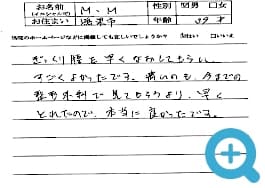 お名前 (イニシャルで) M・M 性別 ☑男 □女
お住まい 鴻巣市 年齢 39才
当院のホームページなどに掲載しても宜しいでしょうか? ☑はい □いいえ
ぎっくり腰を早くなおしてもらい
すごくよかったです。痛いのも、今までの
整形外科で見てもらうより、早く
とれたので、本当に良かったです。